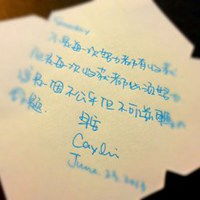 Someday
不是每一次努力都有收获
但是每一次收获都必须努力
这是一個不公平但不可逆轉的
命題
早安
Caylin
June. 23. 2013